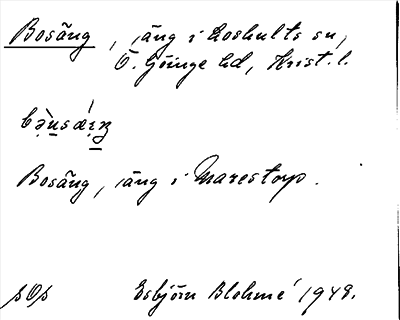 Bosäng, äng i Loshults sn,
Ö. Göinge hd, Krist. l.
Bosäng, äng i Marestorp.
Esbjörn Blohmé 1948.